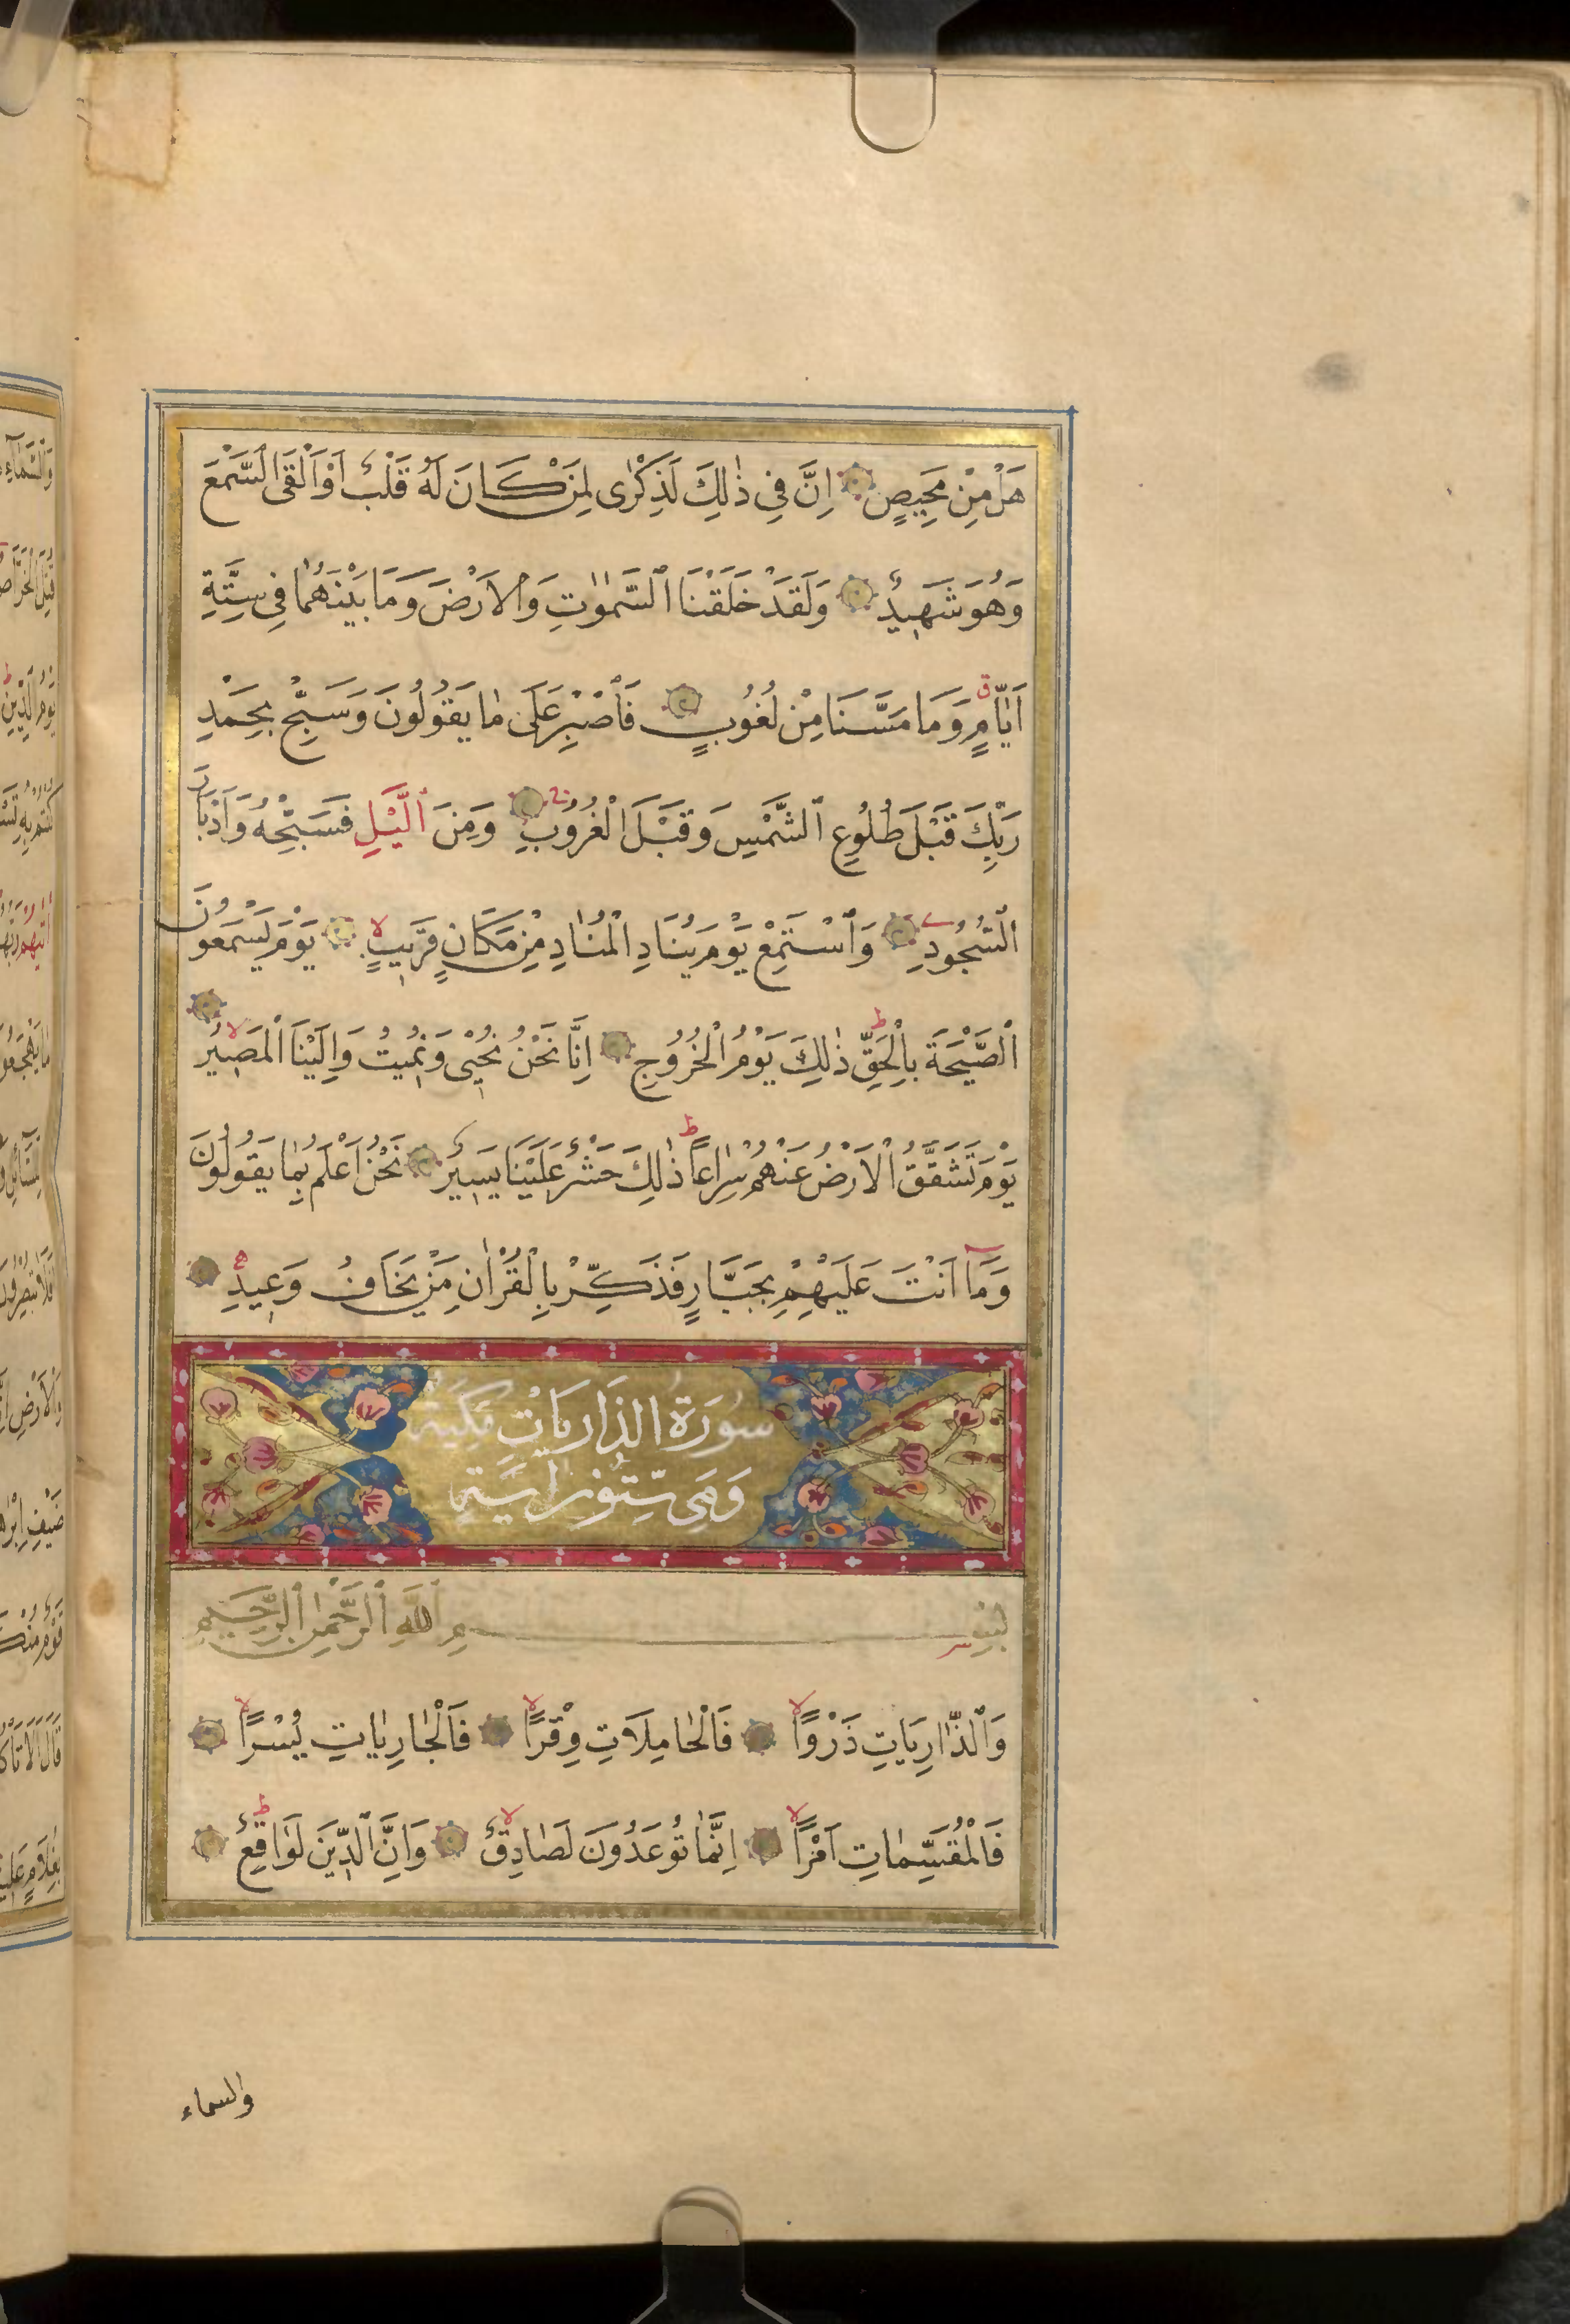 هَلْ مِنْ مَحِيصٍ اِنَّ فِي ذٰلِكَ لَذِكْرٰى لِمَنْ كَانَ لَهُ قَلْبٌ اَوْ اَلْقَى السَّمْعَ
وَهُوَ شَهِيدٌ وَلَقَدْ خَلَقْنَا السَّمٰوٰتِ وَالْاَرْضَ وَمَا بَيْنَهُمٰا فِي سِتَّةِ
اَيّٰامٍ ق وَمَا مَسَّنَا مِنْ لُغُوبٍ فَاصْبِرْ عَلٰى مٰا يَقُولُونَ وَسَبِّحْ بِحَمْدِ
رَبِّكَ قَبْلَ طُلُوعِ الشَّمْسِ وَقَبْلَ الْغُرُوبِ وَمِنَ الَّيْلِ فَسَبِّحْهُ وَاَدْبَارَ
السُّجُودِ وَاسْتَمِعْ يَوْمَ يُنَادِ الْمُنٰادِ مِنْ مَكَانٍ قَرِيبٍ لا يَوْمَ يَسْمَعُونَ
الصَّيْحَةَ بِالْحَقِّ ط ذٰلِكَ يَوْمُ الْخُرُوجِ اِنَّا نَحْنُ نُحْيِى وَنُمِيتُ وَاِلَيْنَا الْمَصِيرُ لا
يَوْمَ تَشَقَّقُ الْاَرْضُ عَنْهُمْ سِرٰاعاً ط ذٰلِكَ حَشْرٌ عَلَيْنَا يَسِيرٌ نَحْنُ اَعْلَمُ بِمٰا يَقُولُونَ
وَمَآ اَنْتَ عَلَيْهِمْ بِجَبَّارٍ فَذَكِّرْ بِالْقُرْاٰنِ مَنْ يَخَافُ وَعِيدِ
سُورَةُ الذَّارِيَاتِ مَكِّيَّة
وَهِيَ سِتُّونَ اٰيَةٍ
بِسْمِ اللّٰهِ الرَّحْمٰنِ الرَّحِيمِ
وَالذّٰارِيَاتِ ذَرْواً لا فَالْحٰامِلَاتِ وِقْرًا لا فَالْجٰارِيٰاتِ يُسْرًا لا
فَالْمُقَسِّمٰاتِ اَمْرًا لا اِنَّمٰا تُوعَدُونَ لَصٰادِقٌ لا وَاِنَّ الدِّينَ لَوٰاقِعٌ ط
والسماء